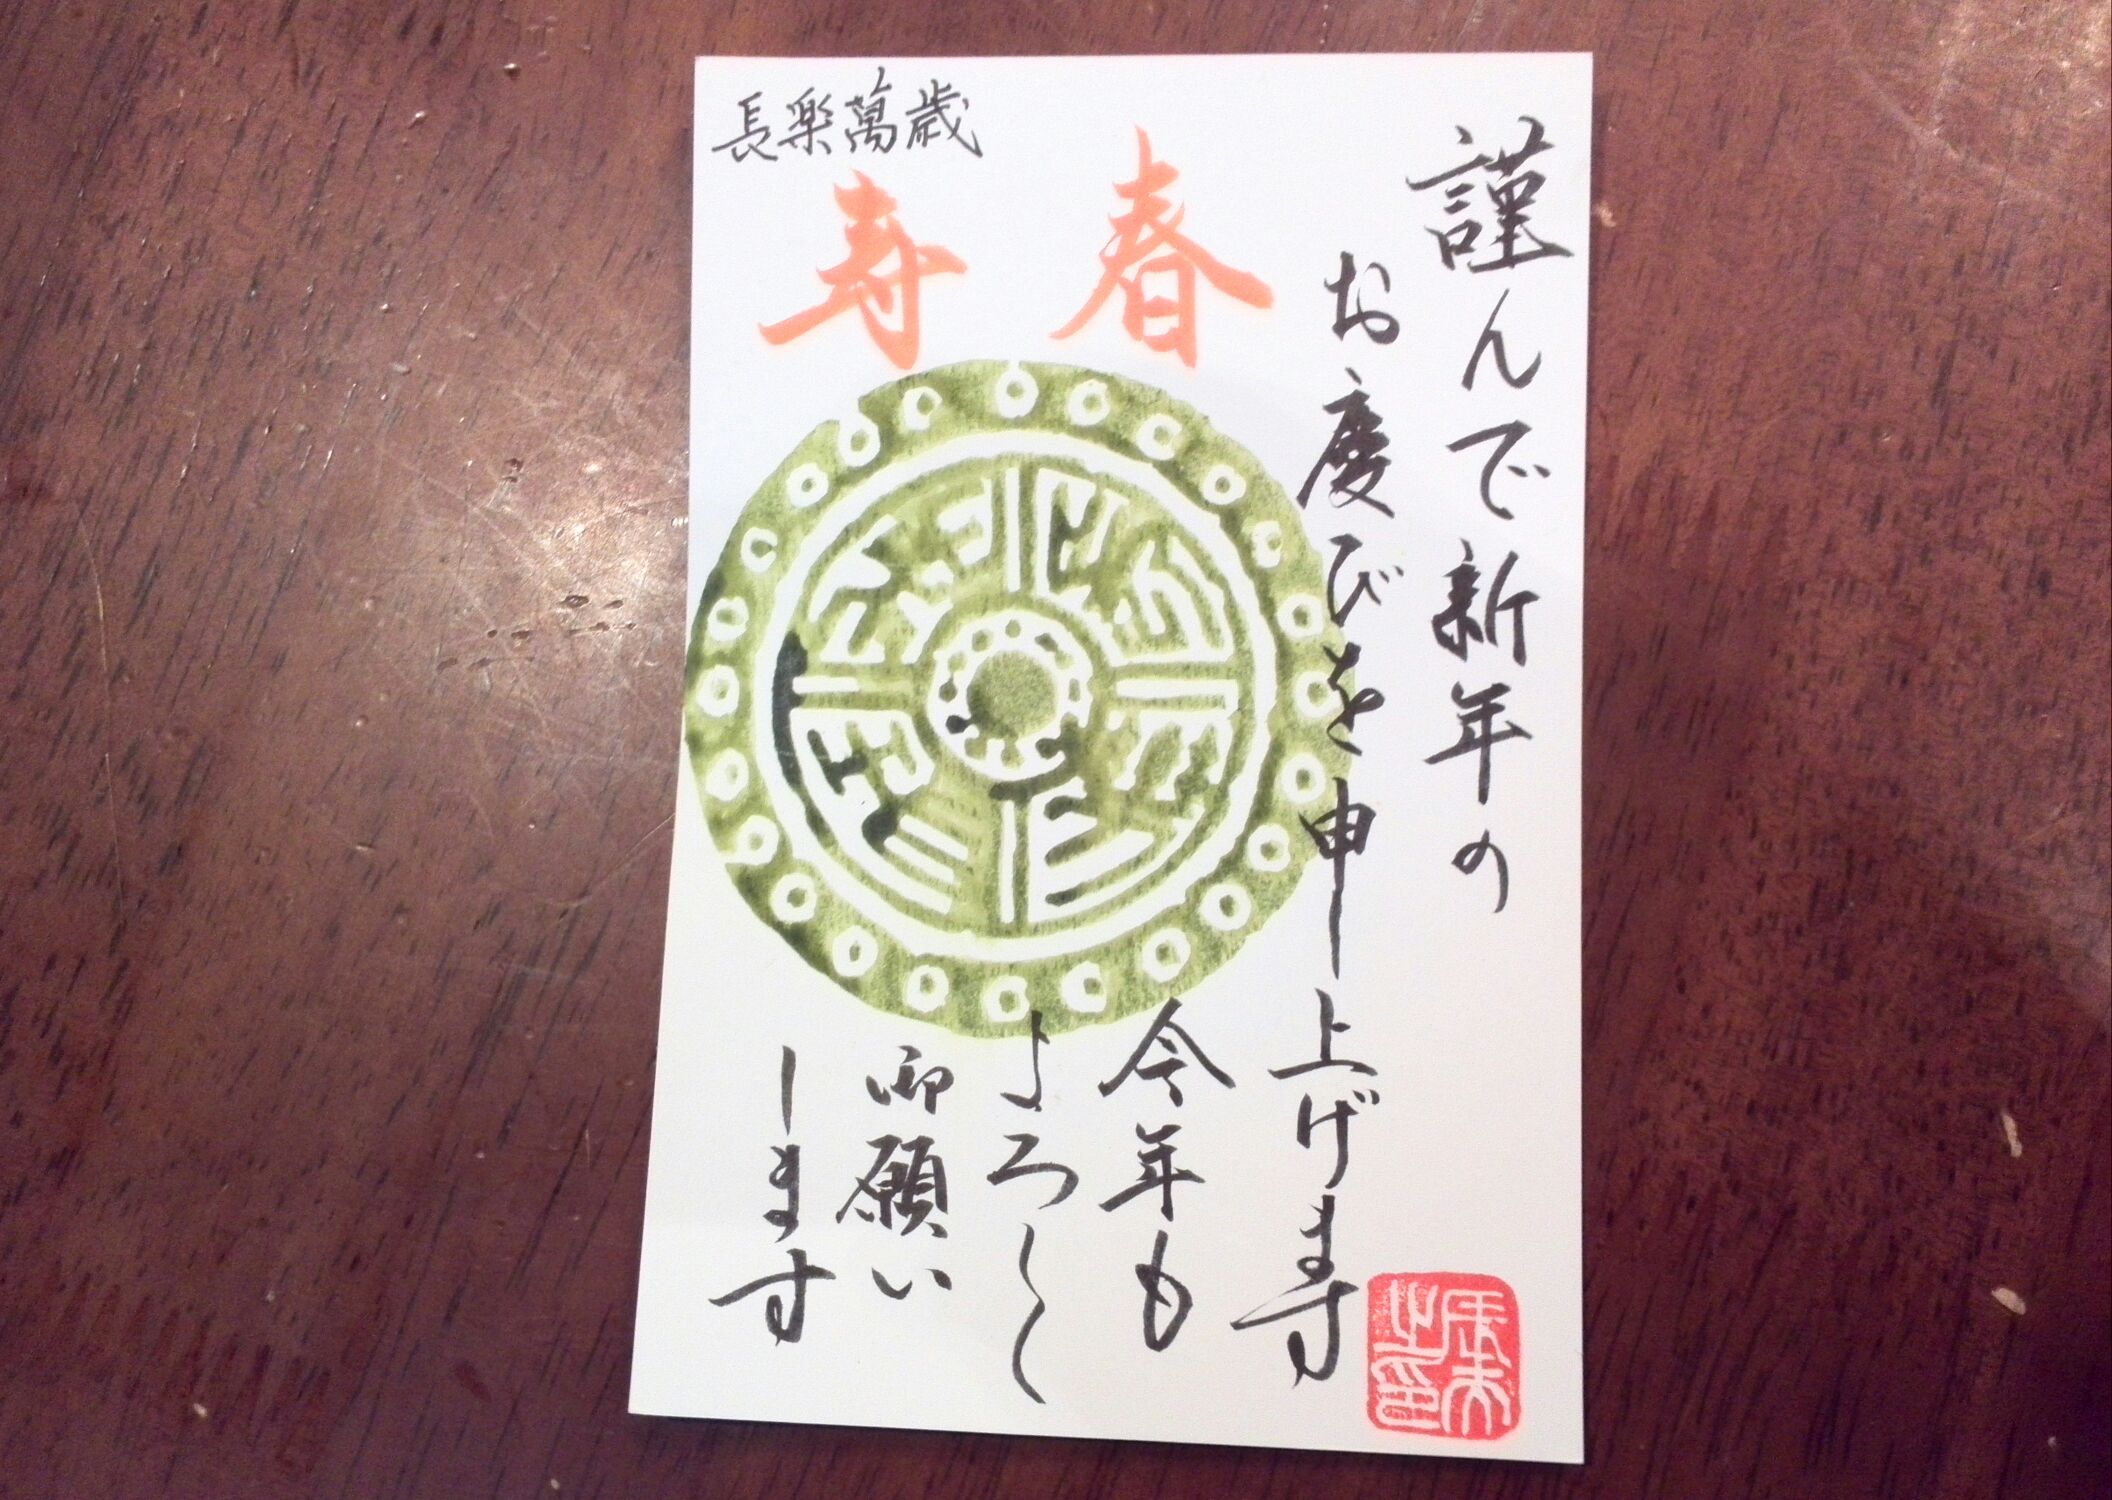 謹んで新年の
お慶びを申し上げます
春
寿
長楽萬歳
今年も
よろしく
御願い
します